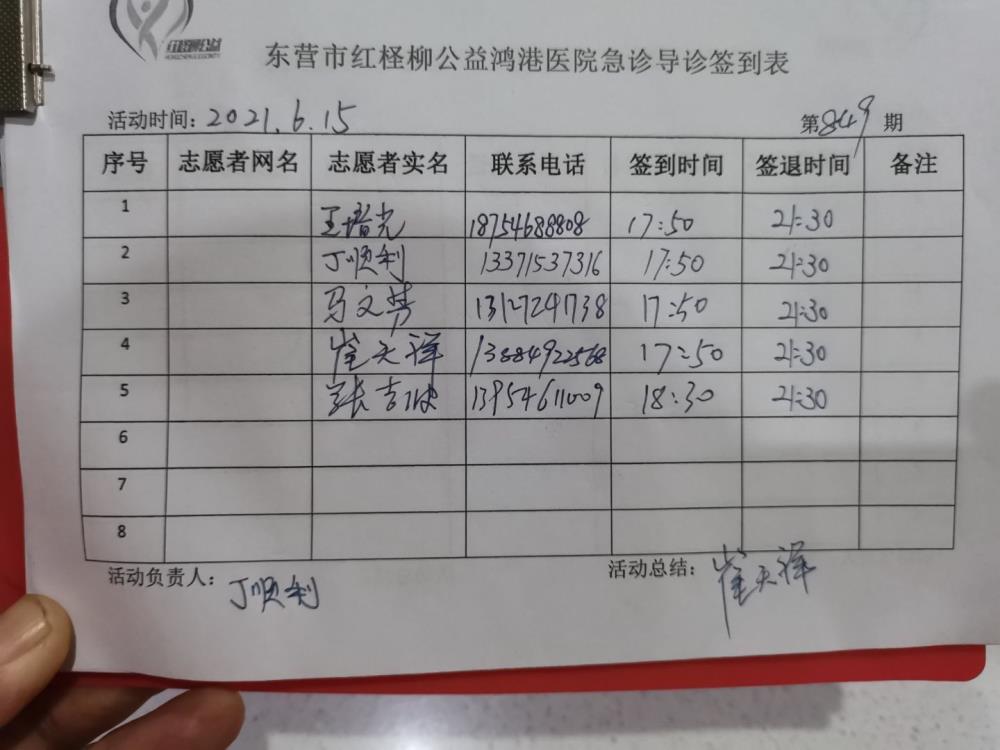 红柽柳公益
东营市红柽柳公益鸿港医院急诊导诊签到表
活动时间：2021.6.15 第849期
序号 志愿者网名 志愿者实名 联系电话 签到时间 签退时间 备注
1 王增光 18754688808 17:50 21:30
2 丁顺利 13371537316 17:50 21:30
3 马文芳 13127291738 17:50 21:30
4 崔天祥 13884922568 17:50 21:30
5 张吉波 13954611009 18:30 21:30
6
7
8
活动负责人：丁顺利 活动总结：崔天祥